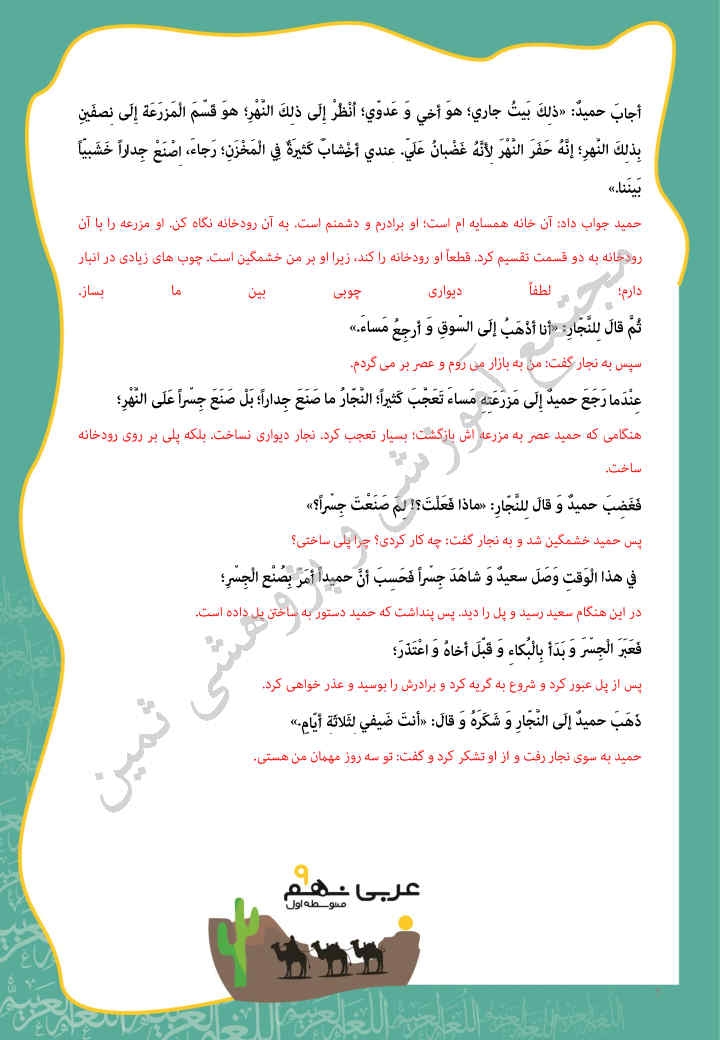 أجابَ حميدٌ: «ذلِكَ بَيتُ جاري؛ هوَ أخي وَ عَدوّي؛ اُنْظُرْ إلَی ذلِكَ النَّهْرِ؛ هوَ قَسَّمَ الْمَزرَعَةَ إلَی نِصفَينِ
بِذلِكَ النَّهرِ؛ إنَّهُ حَفَرَ النَّهْرَ لِأنَّهُ غَضْبانُ عَلَيَّ. عِندي أخْشابٌ كَثيرَةٌ فِي الْمَخْزَنِ؛ رَجاءً، اِصْنَعْ جِداراً خَشَبيّاً
بَينَنا.»
حمید جواب داد: آن خانه همسایه ام است؛ او برادرم و دشمنم است. به آن رودخانه نگاه کن. او مزرعه را با آن
رودخانه به دو قسمت تقسیم کرد. قطعاً او رودخانه را کند، زیرا او بر من خشمگین است. چوب های زیادی در انبار
دارم؛ لطفاً دیواری چوبی بین ما بساز.
ثُمَّ قالَ لِلنَّجّارِ: «أنا أذْهَبُ إلَی السّوقِ وَ أرجِعُ مَساءً.»
سپس به نجار گفت: من به بازار می روم و عصر بر می گردم.
عِنْدَما رَجَعَ حميدٌ إلَی مَزرَعَتِهِ مَساءً تَعَجَّبَ كَثيراً؛ النَّجّارُ ما صَنَعَ جِداراً؛ بَلْ صَنَعَ جِسْراً عَلَی النَّهْرِ؛
هنگامی که حمید عصر به مزرعه اش بازگشت؛ بسیار تعجب کرد. نجار دیواری نساخت. بلکه پلی بر روی رودخانه
ساخت.
فَغَضِبَ حميدٌ وَ قالَ لِلنَّجّارِ: «ماذا فَعَلْتَ؟! لِمَ صَنَعْتَ جِسْراً؟»
پس حمید خشمگین شد و به نجار گفت: چه کار کردی؟ چرا پلی ساختی؟
في هذا الْوَقتِ وَصَلَ سعيدٌ وَ شاهَدَ جِسْراً فَحَسِبَ أنَّ حميداً أمَرَ بِصُنْعِ الْجِسْرِ؛
در این هنگام سعید رسید و پل را دید. پس پنداشت که حمید دستور به ساختن پل داده است.
فَعَبَرَ الْجِسْرَ وَ بَدَأ بِالْبُكاءِ وَ قَبَّلَ أخاهُ وَ اعْتَذَرَ؛
پس از پل عبور کرد و شروع به گریه کرد و برادرش را بوسید و عذر خواهی کرد.
ذَهَبَ حميدٌ إلَی النَّجّارِ وَ شَكَرَهُ وَ قالَ: «أنتَ ضَيفي لِثَلاثَةِ أيّامٍ.»
حمید به سوی نجار رفت و از او تشکر کرد و گفت: تو سه روز مهمان من هستی.
مجتمع آموزشی و پژوهشی ثمین
۹
عربی نهم
متوسطه اول